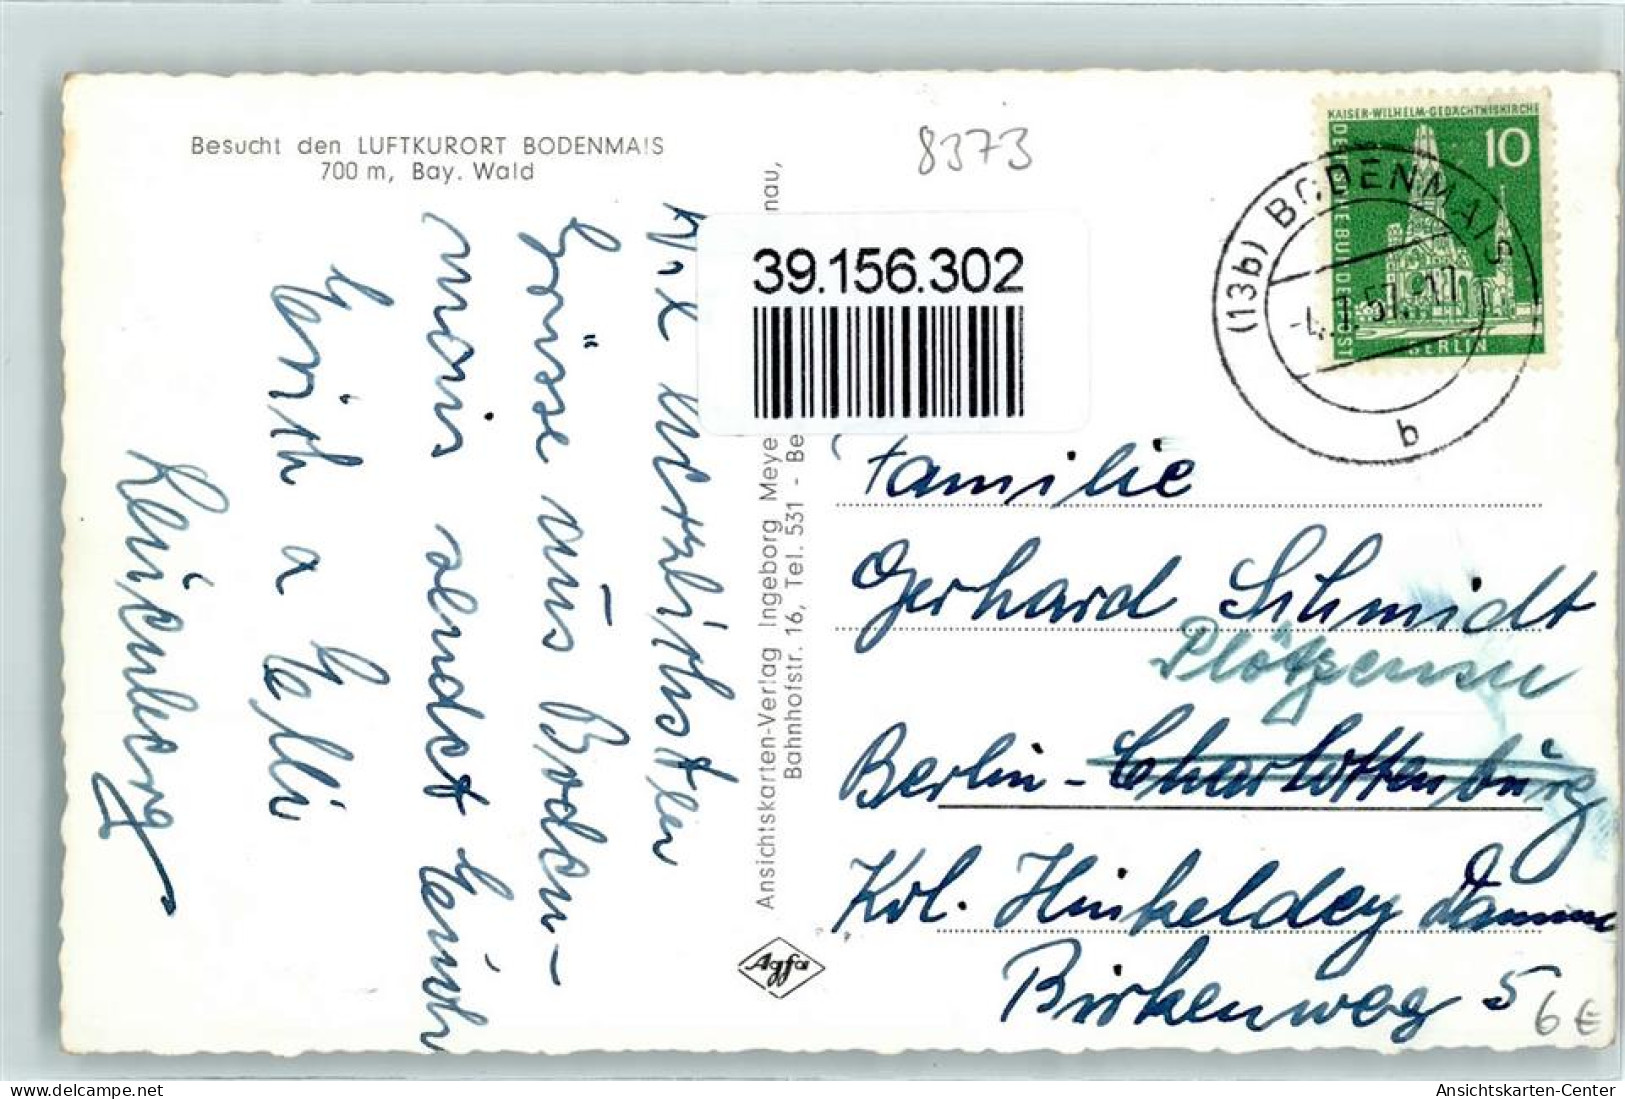 Besucht den LUFTKURORT BODENMAIS
700 m, Bay. Wald
8373
39.156.302
KAISER-WILHELM-GEDÄCHTNISKIRCHE
10
DEUTSCHE BUNDESPOST
BERLIN
(13b) BODENMAIS
b
Die herzlichsten
Grüsse aus Boden-
mais sendet
a
Ansichtskarten-Verlag Ingeborg Meye
nau,
Bahnhofstr. 16, Tel. 531 - Be
Agfa
Familie
Gerhard Schmidt
Plötzensee
Berlin-Charlottenburg
Kol. Hinkeldey Damm
Birkenweg 5
6 €
oldthing.de
Ansichtskarten-Center